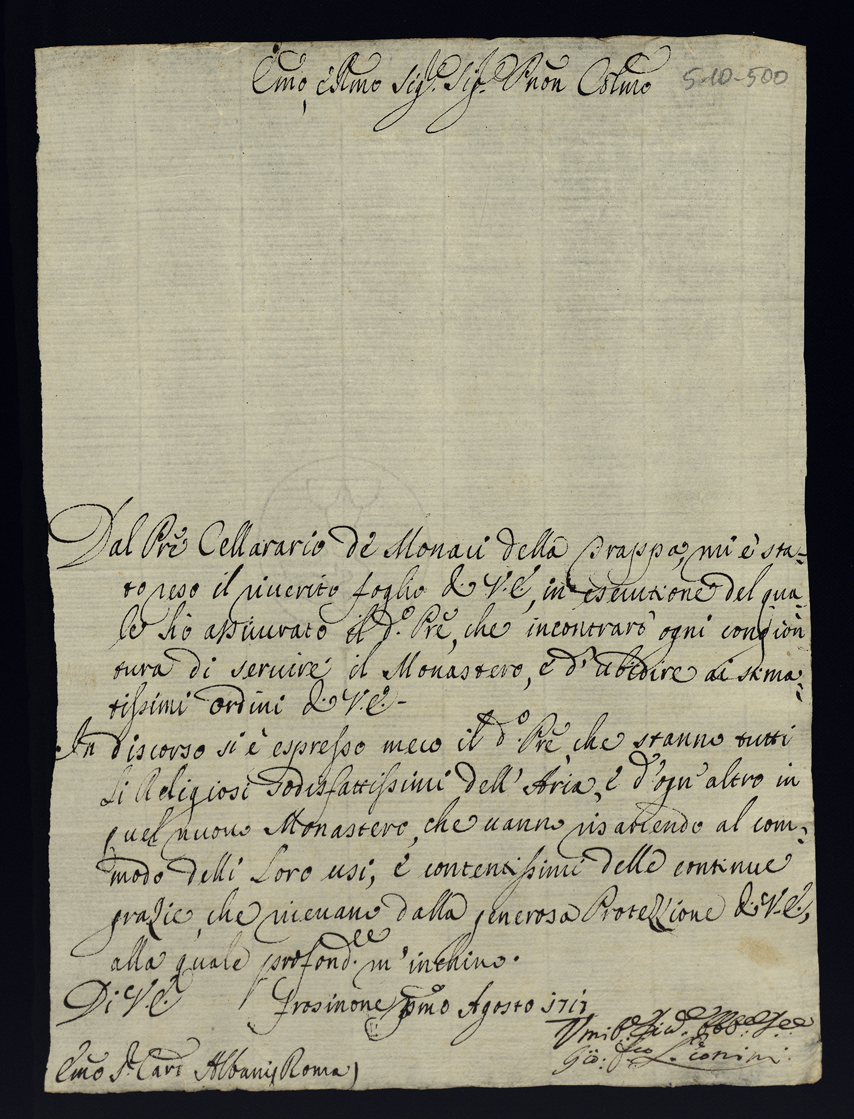 Emo, e Rmo Sig.e Sig.e Pron Colmo
5-10-500
Dal Prẽ Cellarario dè Monaci della Trappa, mi è sta-
to reso il riverito foglio di V.E., in esecutione del qua-
le hò assicurato il d.º Prẽ, che incontrarò ogni congion
tura di servire il Monastero, e d'ubidire ai stima-
tissimi ordini di V.E.-
In discorso si è espresso meco il d.º Prẽ, che stanno tutti
li Religiosi sodisfattissimi dell'Aria, è d'ogn'altro in
quel nuovo Monastero, che vanno risarciendo al com-
modo delli Loro usi, è contentissimi delle continue
grazie, che ricevano dalla generosa Protezzione di V.E.,
alla quale profond.ee m'inchino.
Di V.E. Frosinone pmo Agosto 1717
Vmil.o
Gio:
Emo S.r Card Albani (Roma)